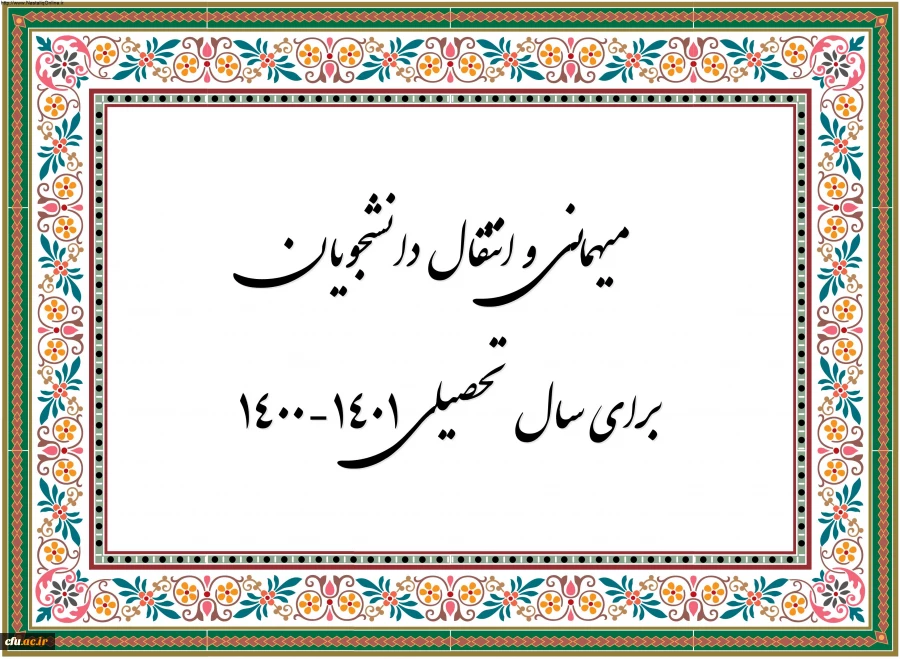 http://www.NastaliqOnline.ir
میهمانی و انتقال دانشجویان
برای سال تحصیلی ۱۴۰۱-۱۴۰۰
cfu.ac.ir